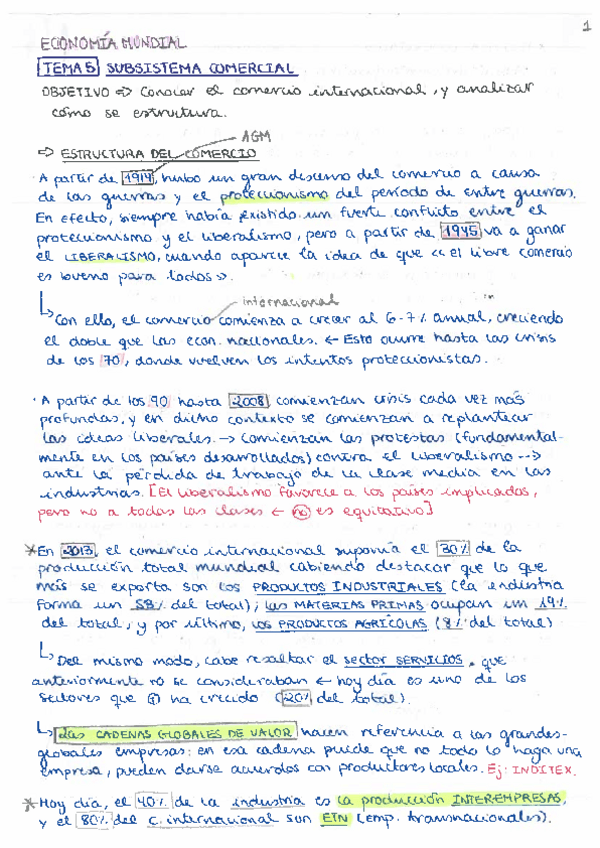 1
ECONOMÍA MUNDIAL
TEMA 5 SUBSISTEMA COMERCIAL
OBJETIVO => Conocer el comercio internacional, y analizar
cómo se estructura.
AGM
=> ESTRUCTURA DEL COMERCIO
· A partir de 1914, hubo un gran descenso del comercio a causa
de las guerras y el proteccionismo del período de entre guerras.
En efecto, siempre había existido un fuerte conflicto entre el
proteccionismo y el liberalismo, pero a partir de 1945 va a ganar
el LIBERALISMO, cuando aparece la idea de que << el libre comercio
es bueno para todos >>.
internacional
Con ello, el comercio comienza a crecer al 6-7% anual, creciendo
el doble que las econ. nacionales. ← Esto ocurre hasta las crisis
de los 70, donde vuelven los intentos proteccionistas.
· A partir de los 90 hasta 2008 comienzan crisis cada vez más
profundas, y en dicho contexto se comienzan a replantear
las ideas liberales. → Comienzan las protestas (fundamental-
mente en los países desarrollados) contra el liberalismo -->
ante la pérdida de trabajo de la clase media en las
industrias. [El liberalismo favorece a los países implicados,
pero no a todas las clases ← no es equitativo]
* En 2013, el comercio internacional suponía el 30% de la
producción total mundial cabiendo destacar que lo que
más se exporta son los PRODUCTOS INDUSTRIALES (la industria
forma un 58% del total); las MATERIAS PRIMAS ocupan un 19%
del total, y por último, los PRODUCTOS AGRÍCOLAS (8% del total)
Del mismo modo, cabe resaltar el sector SERVICIOS, que
anteriormente no se consideraban ← hoy día es uno de los
sectores que + ha crecido (20% del total).
Las CADENAS GLOBALES DE VALOR hacen referencia a las grandes-
globales empresas: en esa cadena puede que no todo lo haga una
empresa, pueden darse acuerdos con productores locales. Ej: INDITEX.
* Hoy día, el 40% de la industria es la producción INTER-EMPRESAS,
y el 80% del c. internacional son ETN (emp. transnacionales).